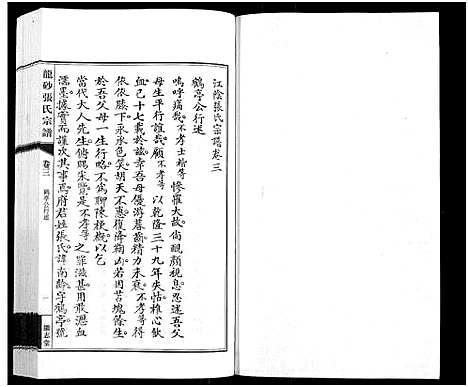 江陰張氏宗譜卷三
鶴亭公行述
嗚呼痛哉不孝士楷等慘罹大故尚靦顏視息忍述吾父
母生平行誼哉顧不孝等以乾隆三十九年失怙椎心飲
血己十七載於茲吾母優游暮齒精力未衰不孝等得
依依膝下承永色笑胡天不惠復降鞠凶因苫塊餘生
於吾父母一生行略不爲聊陳梗概以乞
當代大人先生俯賜采覽是不孝等之罪滋甚用敢瀝血
濡墨據實而謹次其事焉府君姓張氏諱南齡字鶴亭號
龍砂張氏宗譜
卷三
鶴亭公行述
一